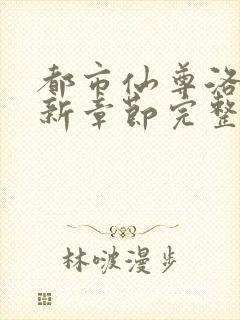 都市仙尊洛
新章节完整
林啵漫步